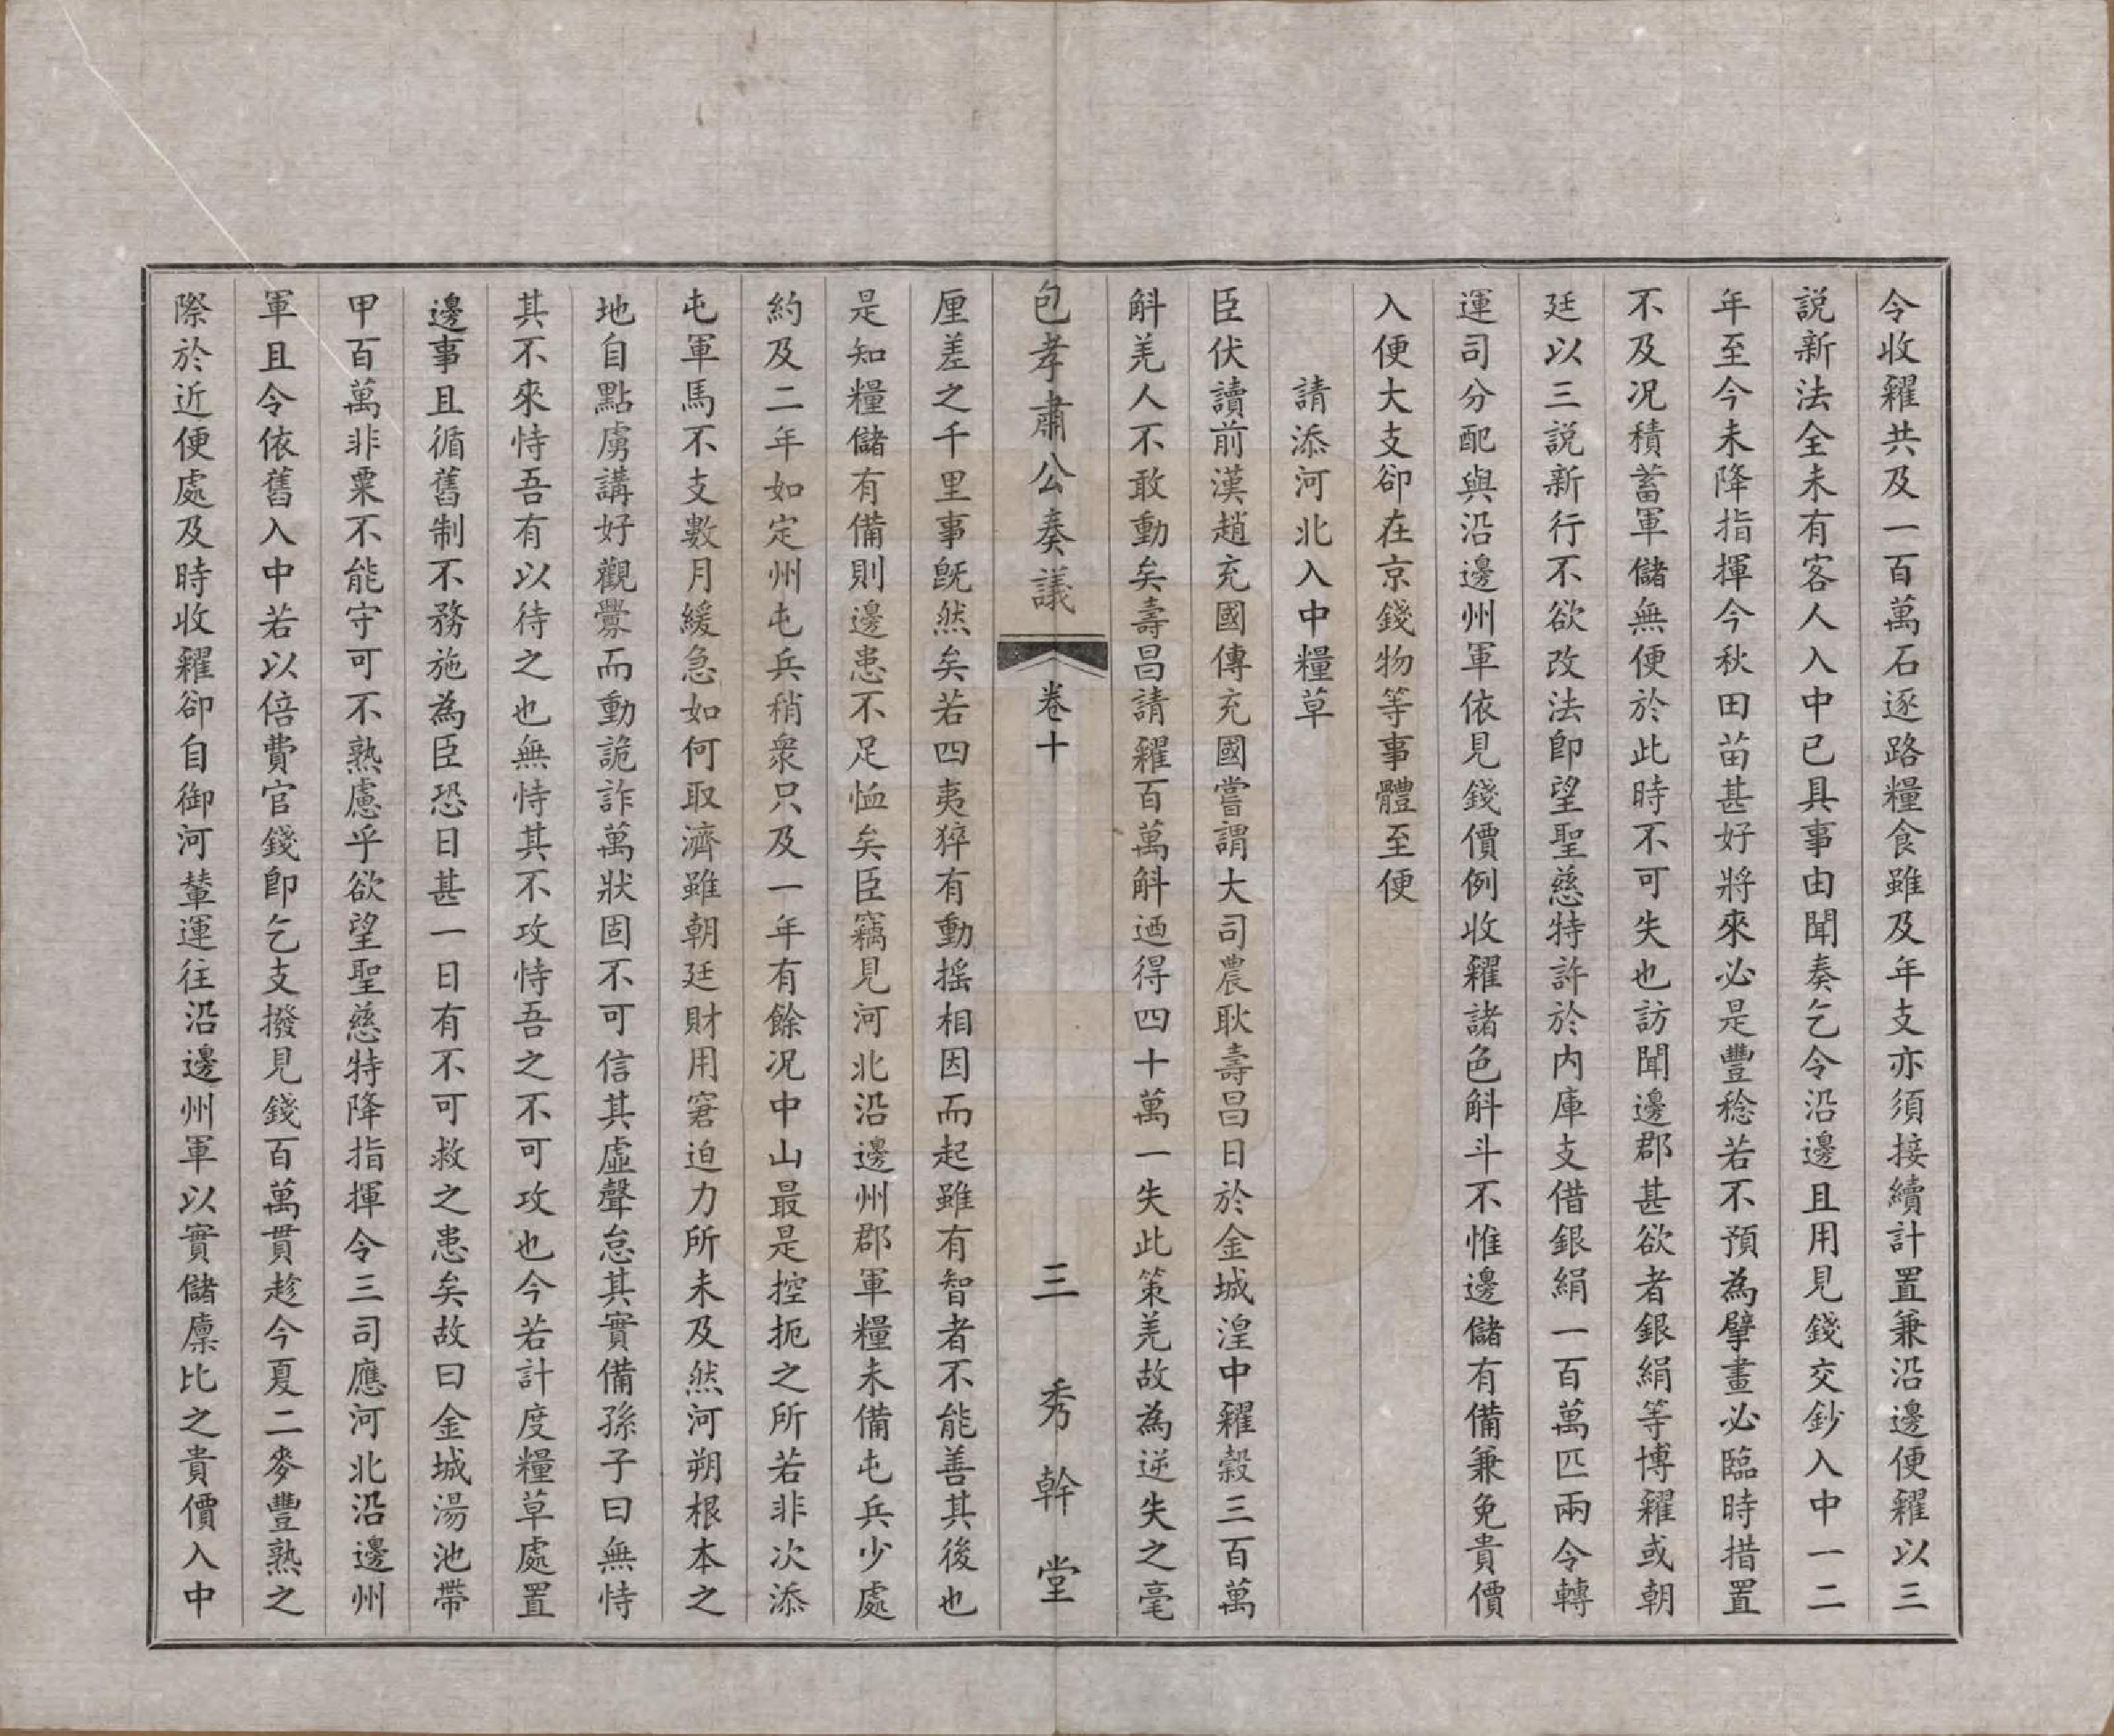 令收糴共及一百萬石逐路糧食雖及年支亦須接續計置兼沿邊便糴以三
説新法全未有客人入中已具事由聞奏乞令沿邊且用見錢交鈔入中一二
年至今未降指揮今秋田苗甚好將來必是豐稔若不預為擘畫必臨時措置
不及况積蓄軍儲無便於此時不可失也訪聞邊郡甚欲者銀絹等博糴或朝
廷以三説新行不欲改法即望聖慈特許於内庫支借銀絹一百萬匹兩令轉
運司分配與沿邊州軍依見錢價例收糴諸色斛斗不惟邊儲有備兼免貴價
入便大支卻在京錢物等事體至便
請添河北入中糧草
臣伏讀前漢趙充國傳充國嘗謂大司農耿壽昌日於金城湟中糴穀三百萬
斛羌人不敢動矣壽昌請糴百萬斛迺得四十萬一失此策羌故為逆失之毫
包孝肅公奏議 卷十 三 秀幹堂
厘差之千里事旣然矣若四夷猝有動摇相因而起雖有智者不能善其後也
是知糧儲有備則邊患不足恤矣臣竊見河北沿邊州郡軍糧未備屯兵少處
約及二年如定州屯兵稍衆只及一年有餘况中山最是控扼之所若非次添
屯軍馬不支數月緩急如何取濟雖朝廷財用窘迫力所未及然河朔根本之
地自點虜講好觀釁而動詭詐萬狀固不可信其虛聲怠其實備孫子曰無恃
其不來恃吾有以待之也無恃其不攻恃吾之不可攻也今若計度糧草處置
邊事且循舊制不務施為臣恐日甚一日有不可救之患矣故曰金城湯池帶
甲百萬非粟不能守可不熟慮乎欲望聖慈特降指揮令三司應河北沿邊州
軍且令依舊入中若以倍費官錢即乞支撥見錢百萬貫趁今夏二麥豐熟之
際於近便處及時收糴卻自御河輦運往沿邊州軍以實儲廪比之貴價入中